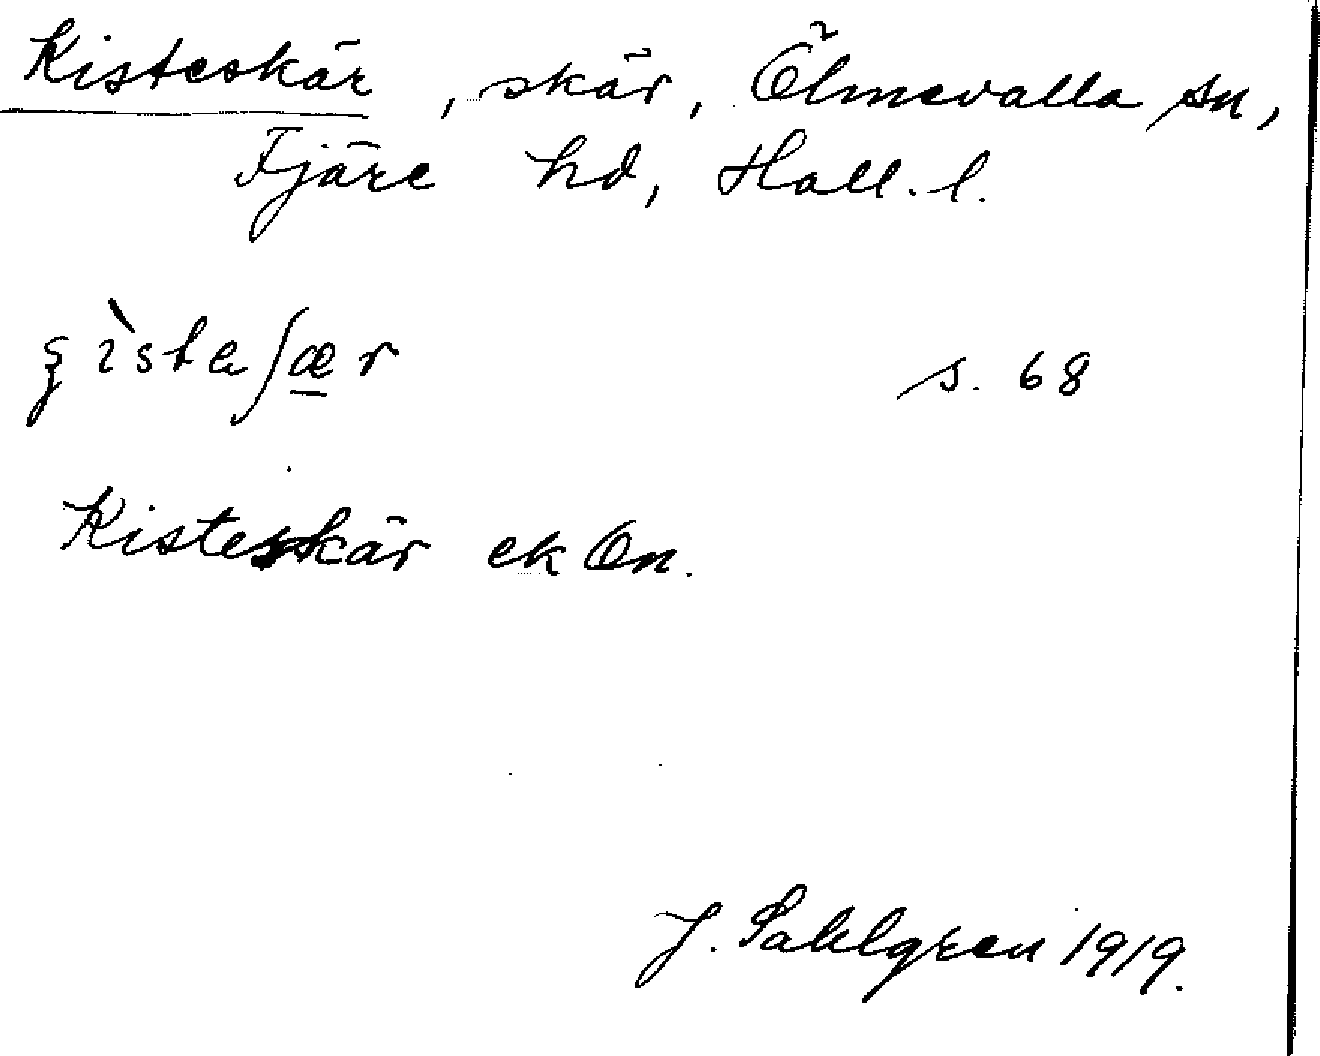 Kisteskär, skär, Ölmevalla sn,
Fjäre hd, Hall. l.
s. 68
Kisteskär ek On.
J. Sahlgren 1919.